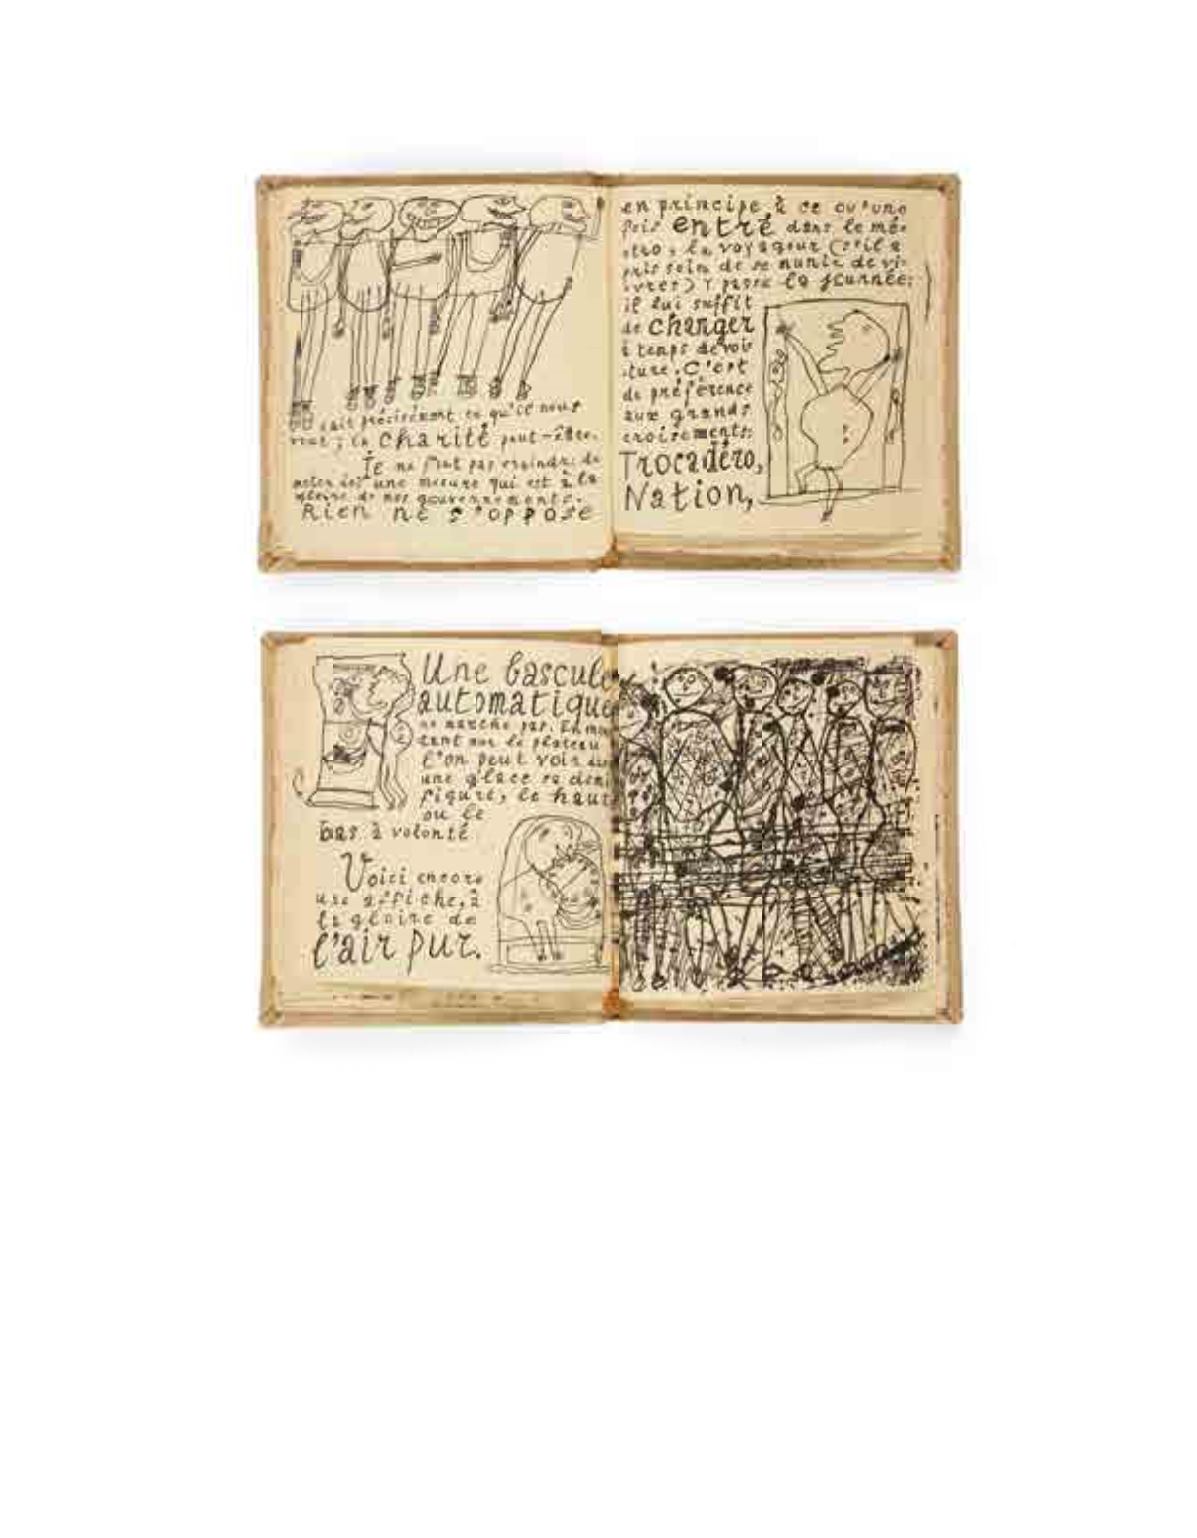 sait précisément ce qu'il nous
vaut; la charité peut-être.
Je ne crindre de
noter ici une mesure qui est à la
gloire de nos gouvernements.
Rien ne s'oppose
en principe à ce qu'une
fois entré dans le mé-
tro, le voyageur (s'il a
pris soin de se munir de vi-
vres) y passe la journée:
il lui suffit
de changer
à temps de voi-
ture. C'est
de préférence
aux grands
croisements:
Trocadéro,
Nation,
Une bascule
automatique
ne marche pas. En mon
tant sur le plateau
l'on peut voir dans
une glace sa demi
figure, le haut
ou le
bas à volonté.
Voici encore
une affiche, à
la gloire de
l'air pur.